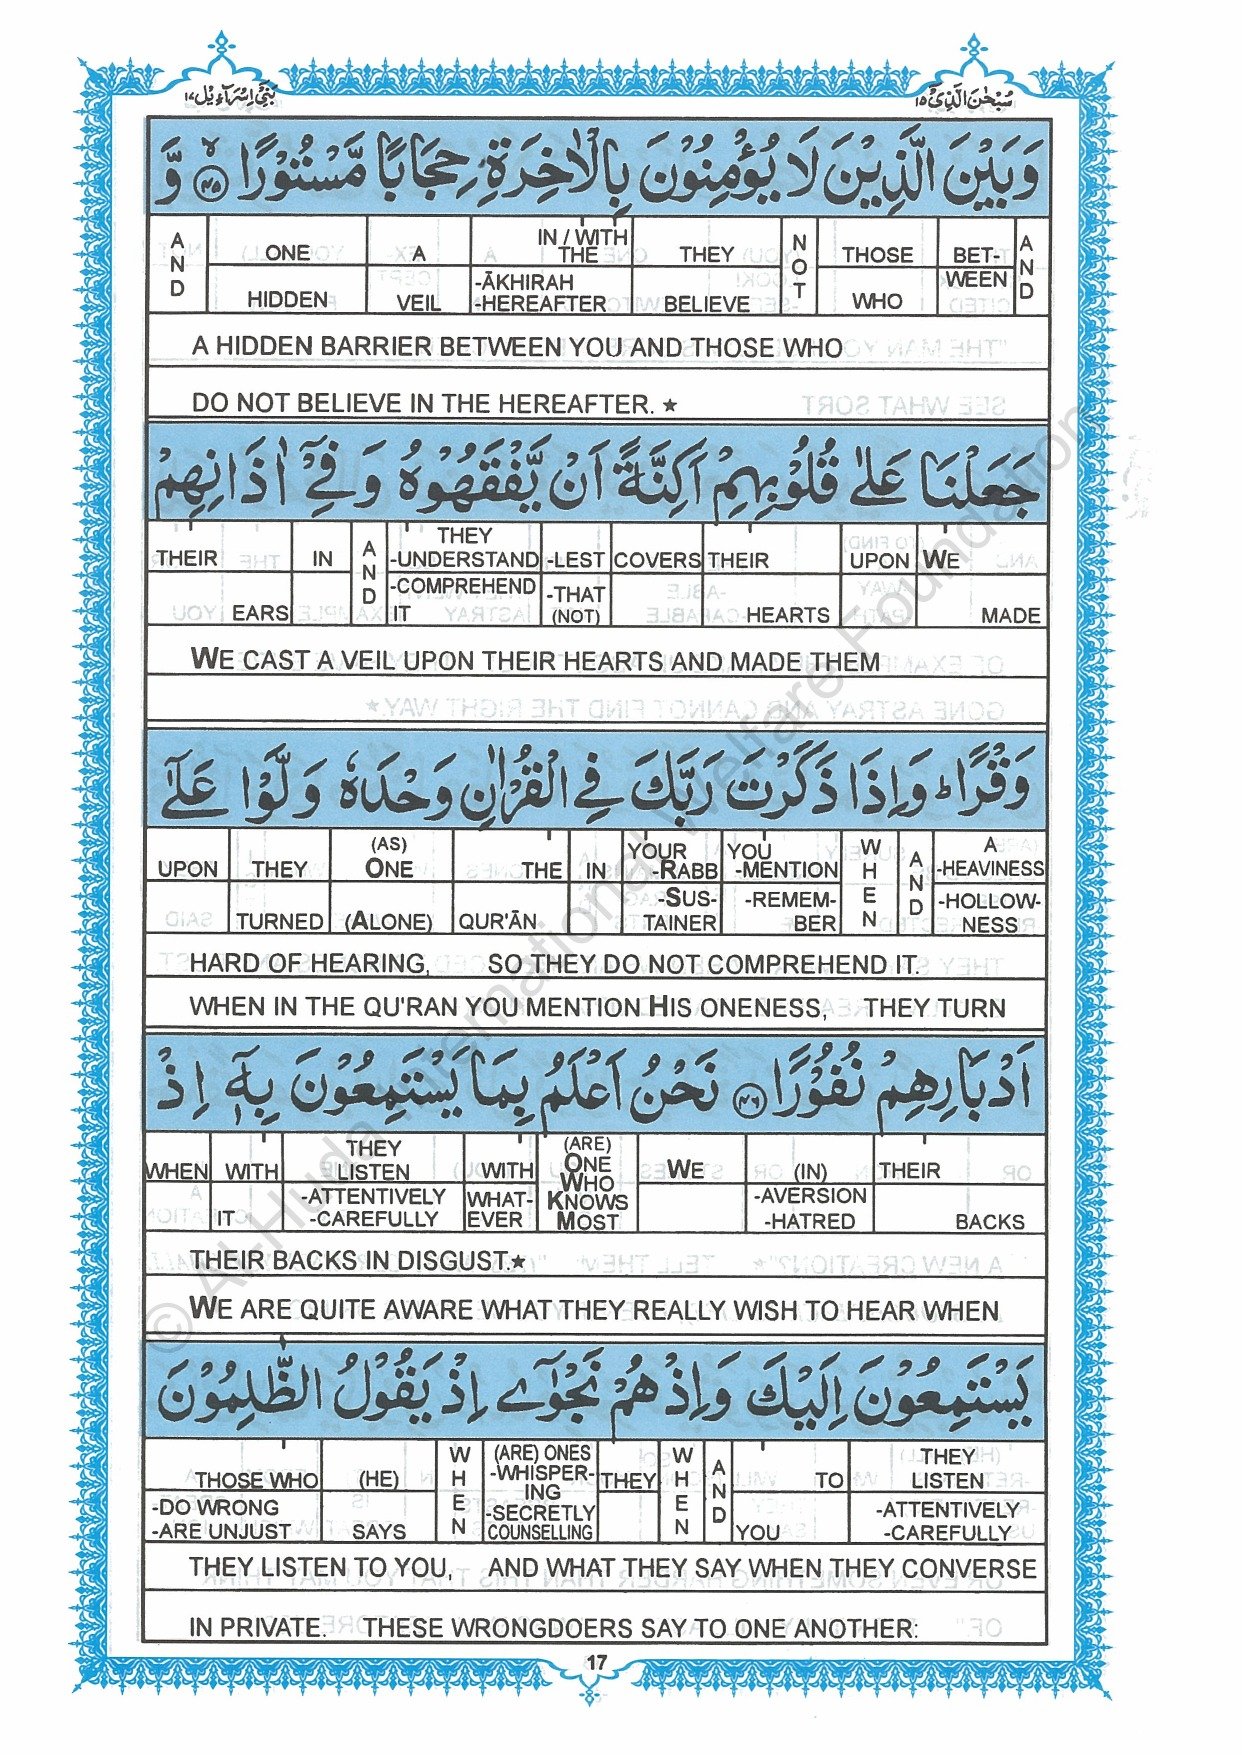 بَنِيْٓ اِسْرَآءِيْل ١٧
سُبْحٰنَ الَّذِيْٓ ١٥
وَبَيْنَ الَّذِيْنَ لَا يُؤْمِنُوْنَ بِالْاٰخِرَةِ حِجَابًا مَّسْتُوْرًا ۙ ٤٥ وَّ
AND ONE A IN / WITH THE THEY NOT THOSE BET- AND
HIDDEN VEIL -ĀKHIRAH -HEREAFTER BELIEVE WHO WEEN
A HIDDEN BARRIER BETWEEN YOU AND THOSE WHO
DO NOT BELIEVE IN THE HEREAFTER. ★
جَعَلْنَا عَلٰى قُلُوْبِهِمْ اَكِنَّةً اَنْ يَّفْقَهُوْهُ وَفِيْٓ اٰذَانِهِمْ
THEIR IN AND THEY -UNDERSTAND -LEST COVERS THEIR UPON WE
EARS -COMPREHEND IT -THAT (NOT) HEARTS MADE
WE CAST A VEIL UPON THEIR HEARTS AND MADE THEM
وَقْرًا ؕ وَاِذَا ذَكَرْتَ رَبَّكَ فِي الْقُرْاٰنِ وَحْدَهٗ وَلَّوْا عَلٰٓى
UPON THEY (AS) ONE THE IN YOUR -RABB YOU -MENTION WHEN AND A -HEAVINESS
TURNED (ALONE) QUR'ĀN -SUS- TAINER -REMEM- BER -HOLLOW- NESS
HARD OF HEARING, SO THEY DO NOT COMPREHEND IT.
WHEN IN THE QU'RAN YOU MENTION HIS ONENESS, THEY TURN
اَدْبَارِهِمْ نُفُوْرًا ٤٦ نَحْنُ اَعْلَمُ بِمَا يَسْتَمِعُوْنَ بِهٖٓ اِذْ
WHEN WITH THEY LISTEN WITH (ARE) ONE WHO KNOWS MOST WE (IN) THEIR
IT -ATTENTIVELY -CAREFULLY WHAT- EVER -AVERSION -HATRED BACKS
THEIR BACKS IN DISGUST.★
WE ARE QUITE AWARE WHAT THEY REALLY WISH TO HEAR WHEN
يَسْتَمِعُوْنَ اِلَيْكَ وَاِذْ هُمْ نَجْوٰٓى اِذْ يَقُوْلُ الظّٰلِمُوْنَ
THOSE WHO (HE) WHEN (ARE) ONES -WHISPER- ING -SECRETLY COUNSELLING THEY WHEN AND TO THEY LISTEN
-DO WRONG -ARE UNJUST SAYS YOU -ATTENTIVELY -CAREFULLY
THEY LISTEN TO YOU, AND WHAT THEY SAY WHEN THEY CONVERSE
IN PRIVATE. THESE WRONGDOERS SAY TO ONE ANOTHER:
17
© Al-Huda International Welfare Foundation